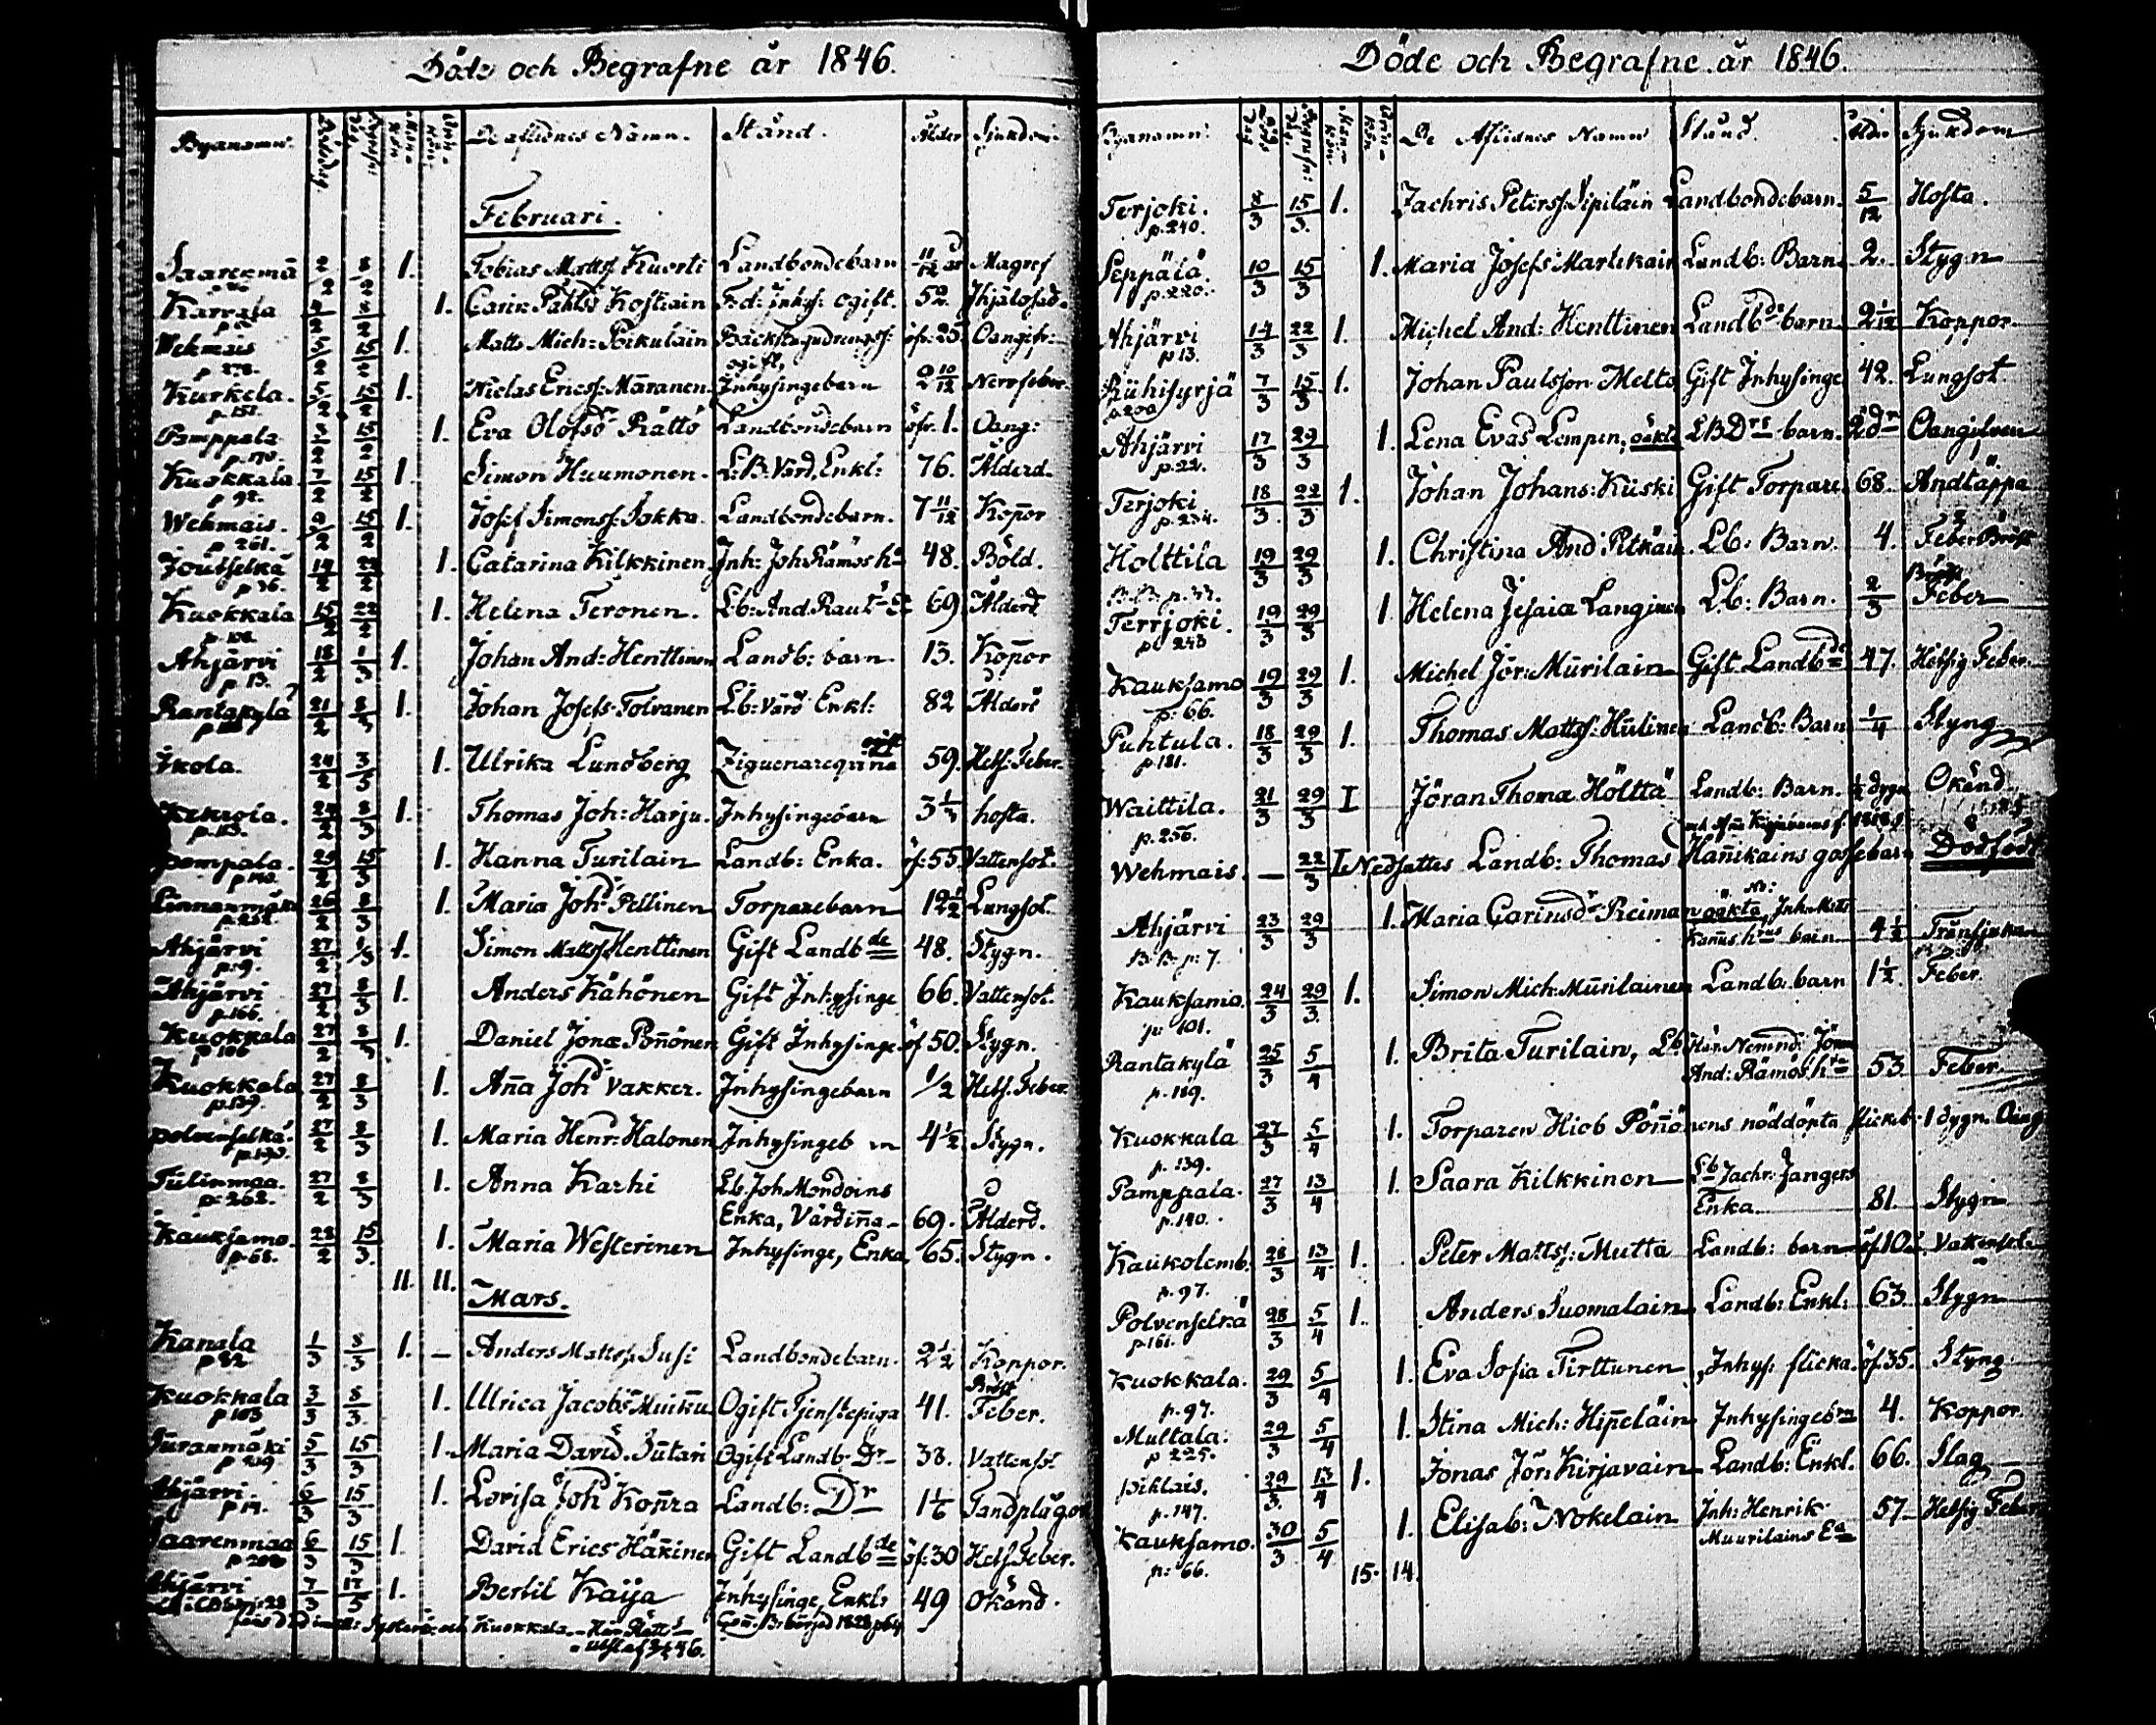 Döde och Begrafne år 1846.
Byanamn. De aflidnes Namn. Stånd. Ålder Sjukdom.
Februari.
Saarenmä 2/2 8/2 1. Tobias Mattss Kuorti Landbondebarn 11/12 år Magref
Karrala 4/2 8/2 1. Carin Påhlsdr Kostiain Fd: Inhys: ogift. 52.
Wehmais 5/2 15/2 1. Matts Mich: Poikulain öfr: 25.
p 278. ogift,
Kurkela. 5/2 15/2 1. Niclas Ericss. Märanen. Inhysingebarn 2 10/12 Nervfeber.
p. 151.
Pamppala 3/2 15/2 1. Eva Olofsdr Rättö Landbondebarn öfr. 1. Oang:
p. 170.
Kuokkala 7/2 15/2 1. Simon Huumonen. L:B: Värd, Enkl: 76. Ålderd.
p 92.
Wehmais. 9/2 15/2 1. Josef Simonss. Sokka. Landbondebarn. 7 11/12 Koppor
p 261.
Joutselkä 14/2 22/2 1. Catarina Kilkkinen. Inh: Joh Rämös hu 48. Böld.
p 36.
Kuokkala 15/2 22/2 1. Helena Teronen. Lb: And. 69. Ålderd
p. 108.
Ahjärvi 18/2 1/3 1. Johan And: Henttinen Landb: barn. 13. Koppor
p 13.
Rantakylä 21/2 8/3 1. Johan Josefs: Tolvanen Lb: Värd Enkl: 82 Ålderd
Ikola. 24/2 3/3 1. Ulrika Lundberg Ziguenareqvina gift 59. Hets: Feber.
Kekrola. 24/2 8/3 1. Thomas Joh: Harju. Inhysingebarn 3 1/3 hosta.
p. 123.
pompala. 25/2 15/3 1. Hanna Turilain Landb: Enka. öf: 55 Vattensot.
p 170.
Linnanmäki 26/2 8/3 1. Maria Johdr Pellinen Torparebarn 12 1/2 Lungsot.
p. 252.
Ahjärvi 27/2 1/3 1. Simon Mattss Henttinen Gift Landbde 48. Stygn.
p. 9.
Ahjärvi 27/2 8/3 1. Anders Kähönen Gift Inhysinge 66. Vattensot.
p. 166.
Kuokkala 27/2 8/3 1. Daniel Jonæ Ponnönen Gift Inhysinge. öf 50. Stygn.
p 106
Kuokkala 27/2 8/3 1. Anna Johdr Vakker. Inhysingebarn 1/2 Hets. Feber.
p. 139.
polvenselkä. 27/2 8/3 1. Maria Henr: Halonen Inhysingeb 4 1/2 Stygn.
Tulinmaa. 27/2 8/3 1. Anna Karhi Lb. Joh. Mondoins
p. 262. Enka, Värdinna 69. Ålderd.
Kauksamo. 28/2 15/3. 1. Maria Westerinen Inhysinge, Enka 65. Stygn.
p. 68.
11. 11.
Mars.
Kanala 1/3 8/3 1. Anders Mattss. Susi Landbondebarn. 2 1/2 Koppor.
p 82
Kuokkala 3/3 8/3. 1. Ulrica Jacobsdr Muikku Ogift Tjenstepiga 41. Bröst Feber.
p 103
Suranmäki 5/3 15/3 1. Maria David. Sutari Ogift Landb. Dr 38. Vattensot
p 259
Ahjärvi. 6/3 15/3 1. Lovisa Johdr Konnra Landb: Dr 1 1/6 Tandplågor
p 14.
Saarenmaa 6/3 15/3 1. David Erics Hänninen Gift Landbde öf: 30 Hets Feber.
p. 208
Ahjärvi 7/3 1. Bertil Kaija Inhysinge, Enkl: 49 Okänd.
Döde och Begrafne år 1846.
Byanamn. De Aflidnes Namn Stånd. Ålder Sjukdom
Terjoki. 15/3. 1. Zachris Peterss. Sipiläin Landbondebarn. 5/12 Hosta.
p. 240.
Seppälä 10/3 15/3 1. Maria Josefs: Martikain Landb: Barn. 2. Stygn
p. 220.
Ahjärvi 14/3 22/3 1. Michel And: Henttinen Landbdr barn 2 1/12 Koppor.
p 13.
Riihisyrjä 7/3 15/3 1. Johan Paulsson Melto Gift Inhysinge 42. Lungsot.
p. 200
Ahjärvi 17/3 29/3 1. Lena Evasd Lempin, oäkta barn. Oangifven
p. 22.
Terjoki 18/3. 22/3 1. Johan Johans: Kiiski Gift Torpare. 68. Andtäppa
p. 234.
Holttila 19/3 29/3 1. Christina Anddr Pitkäin. Lb: Barn. 4. Feber Bröst
Terrjoki. 19/3 29/3 1 Helena Jesaiæ Langinen Lb: Barn. 2/3 Bröst Feber
p. 243
Kauksamo 19/3 29/3 1. Michel Jör: Murilain Gift Landbde 47. Hetsig Feber.
p. 66.
Puhtula. 18/3 29/3 1. Thomas Mattss: Hulinen Landb: Barn 1/4 Styng
p. 181.
Waittila. 21/3 29/3 I Jöran Thomæ Hölttä Landb: Barn. 1/2 dygn Okänd
p. 256.
Wehmais. — 22/3 1 Nedsattes Landb: Thomas Hannikains gossebarn Dödfödt
Ahjärvi 23/3 29/3 1. Maria Carinsdr Reiman oäkta, Inh. Matts
p. 7. barn 4 1/2 Trånsjukan
Kauksamo. 24/3 29/3. 1. Simon Mich: Murilainen Landb: barn 1 1/2. Feber.
p. 101.
Rantakylä 25/3 5/4 1. Brita Turilain, Lb: Här. Nämnd: Jöran
p. 189. And: Rämös hru 53. Feber.
Kuokkala 27/3 5/4 1. Torparen Hiob Pönnönens nöddöpta flickeb. 1 dygn. Oang
p. 139.
Pamppala. 27/3 13/4 1. Saara Kilkkinen Lb Zachr: Zangers
p. 140. Enka. 81. Stygn
Kaukolemb. 28/3 13/4. 1. Peter Mattss: Mutta Landb: barn öf. 10 Vattensot
p. 97.
Polvenselkä 28/3 5/4 1. Anders Suomalain Landb: Enkl: 63. Stygn
p. 161.
Kuokkala. 29/3 5/4 1. Eva Sofia Tirttunen, Inhys: flicka. öf. 35. Styng
p. 97.
Multala. 29/3 5/4 1. Stina Mich: Hippeläin Inhysingebrn 4. Koppor.
p 225.
pihlais. 29/3. 13/4 1. Jonas Jör: Kirjavain Landb: Enkl. 66. Slag
p. 147.
Kauksamo. 30/3 5/4 1. Elisab: Nokelain Inh: Henrik 57. Hetsig Feber
p: 66. Muurilains Ea
15. 14.